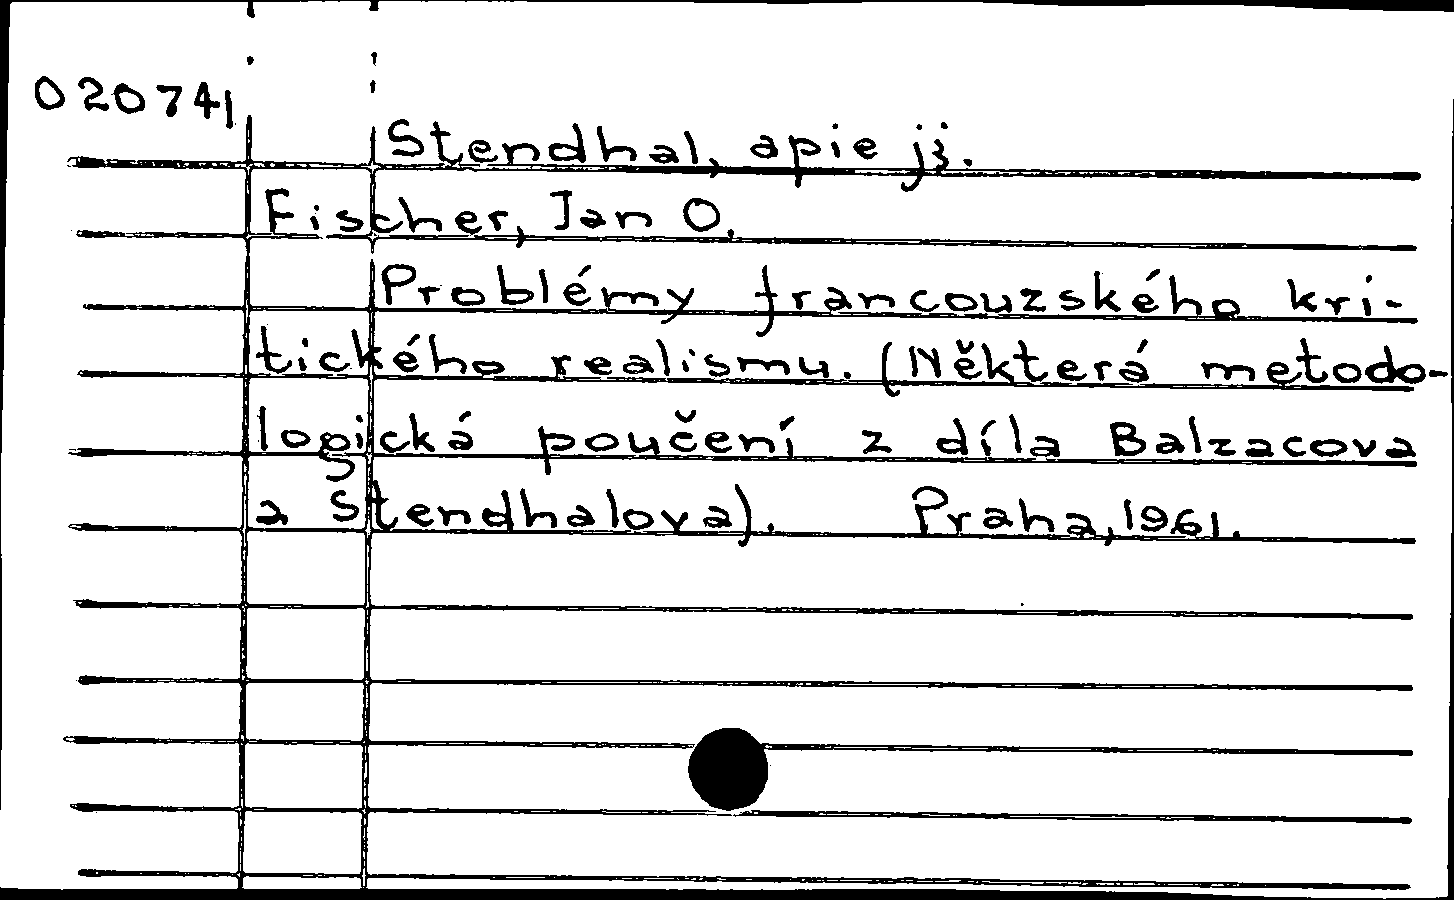 020741
Stendhal, apie jį.
Fischer, Jan O.
Problémy francouzského kri-
tického realismu. (Některá metodo-
logická poučení z díla Balzacova
a Stendhalova). Praha, 1961.